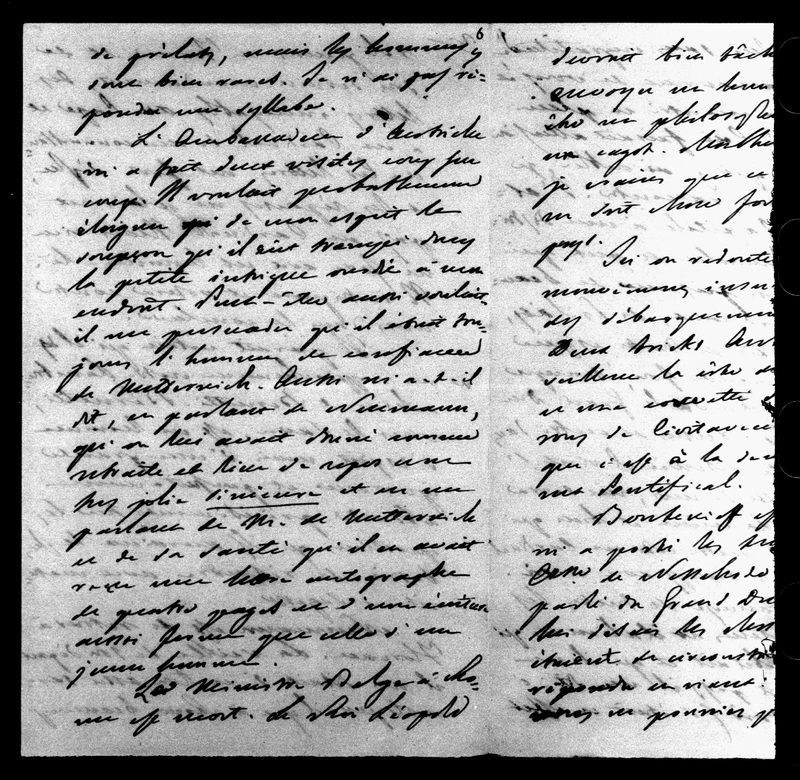 6
de prélats, mais les hommes y
sont bien rares. Je n'ai pas ré-
pondu une syllabe.
L'Ambassadeur d'Autriche
m'a fait deux visites coup sur
coup. Il voulait probablement
éloigner de mon esprit le
soupçon qu'il eût trempé dans
la petite intrigue ourdie à mon
endroit. Peut-être aussi voulait
il me persuader qu'il était tou-
jours l'homme de confiance
de Metternich. Aussi m'a-t-il
dit, en parlant de Neumann,
qu'on lui avait donné comme
retraite et lieu de repos une
très jolie sinécure et en me
parlant de M. de Metternich
et de sa santé qu'il en avait
reçu une lettre autographe
de quatre pages et d'une écriture
aussi ferme que celle d'un
jeune homme.
Le Ministre Belge à Ro-
me est mort. Le Roi Léopold
devrait bien tâch
envoyer un hom
un philosoph
un cagot. Malh
je crains que ce
ne soit chose for
pays.
Ici on redoute
mouvemens insur
des débarquemen
Deux bricks Aut
veillent la côte de
et une corvette
rons de Civitavecc
que c'est à la de
ment Pontifical.
Boutenieff est
m'a porté les
de Nesselrode
parlé du Grand Du
lui disais les
étaient de circonst
répondu en riant: